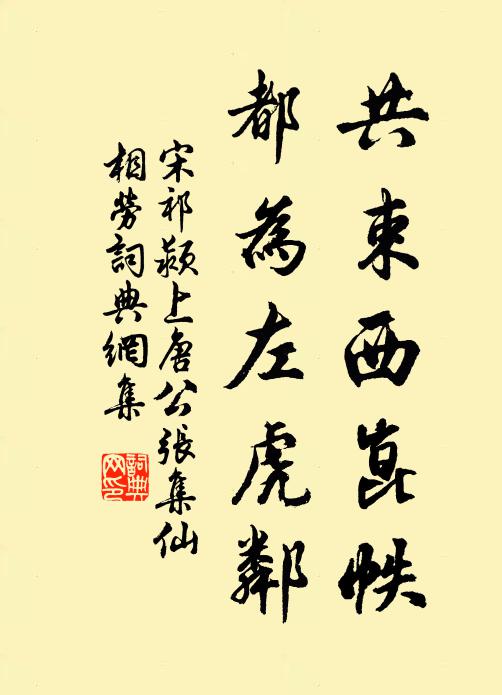 共東西崑帙
都為左虎鄰
宋祁潁上唐公張集仙
相勞詞典網集
詞典網印